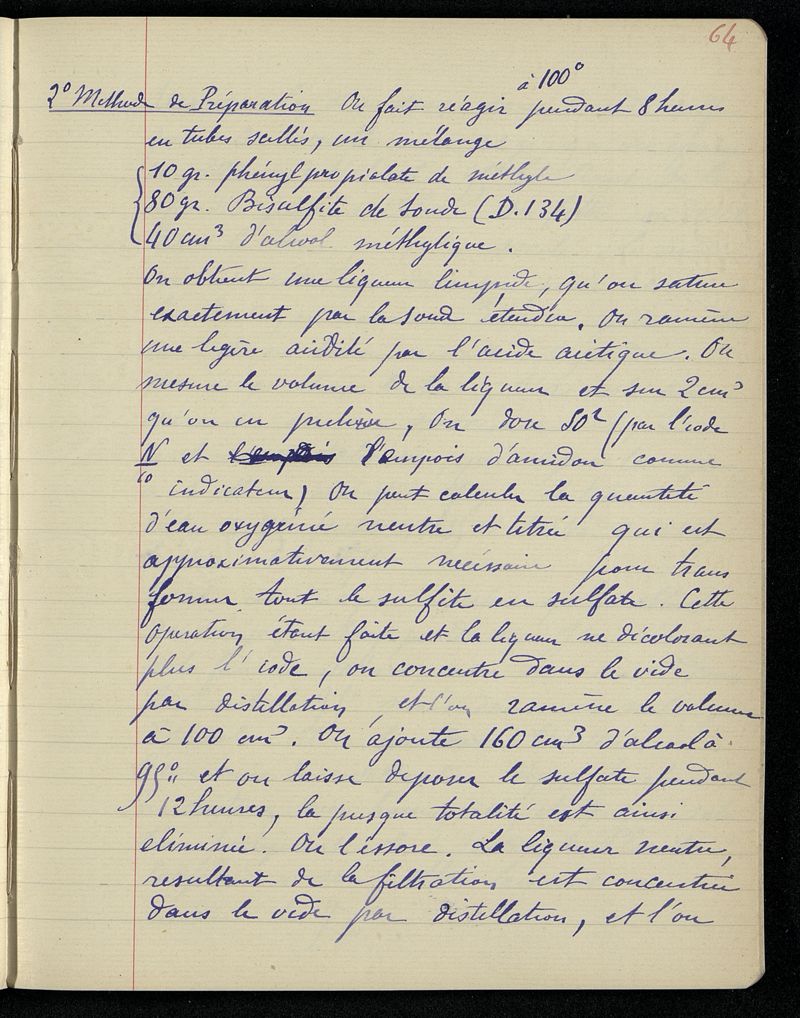 64
à 100°
2° Methode de Préparation On fait réagir pendant 8 heures
en tubes scellés, un mélange
10 gr. phénylpropiolate de méthyle
80 gr. Bisulfite de soude (D.134)
40 cm³ d'alcool méthylique.
On obtient une liqueur limpide, qu'on sature
exactement par la soude étendue. On ramène
une legère acidité par l'acide acétique. On
mesure le volume de la liqueur et sur 2 cm³
qu'on en prelève, On dose SO² (par l'iode
N/10 et l'empois l'empois d'amidon comme
indicateur) On peut calculer la quantité
d'eau oxygéné neutre et titrée qui est
approximativement nécéssaire pour trans
former tout le sulfite en sulfate. Cette
opération étant faite et la liqueur ne décolorant
plus l'iode, on concentre dans le vide
par distillation et l'on ramène le volume
à 100 cm³. On ajoute 160 cm³ d'alcool à
95° et on laisse deposer le sulfate pendant
12 heures, la presque totalité est ainsi
eliminée. On l'éssore. La liqueur neutre,
resultant de la filtration est concentrée
dans le vide par distillation, et l'on